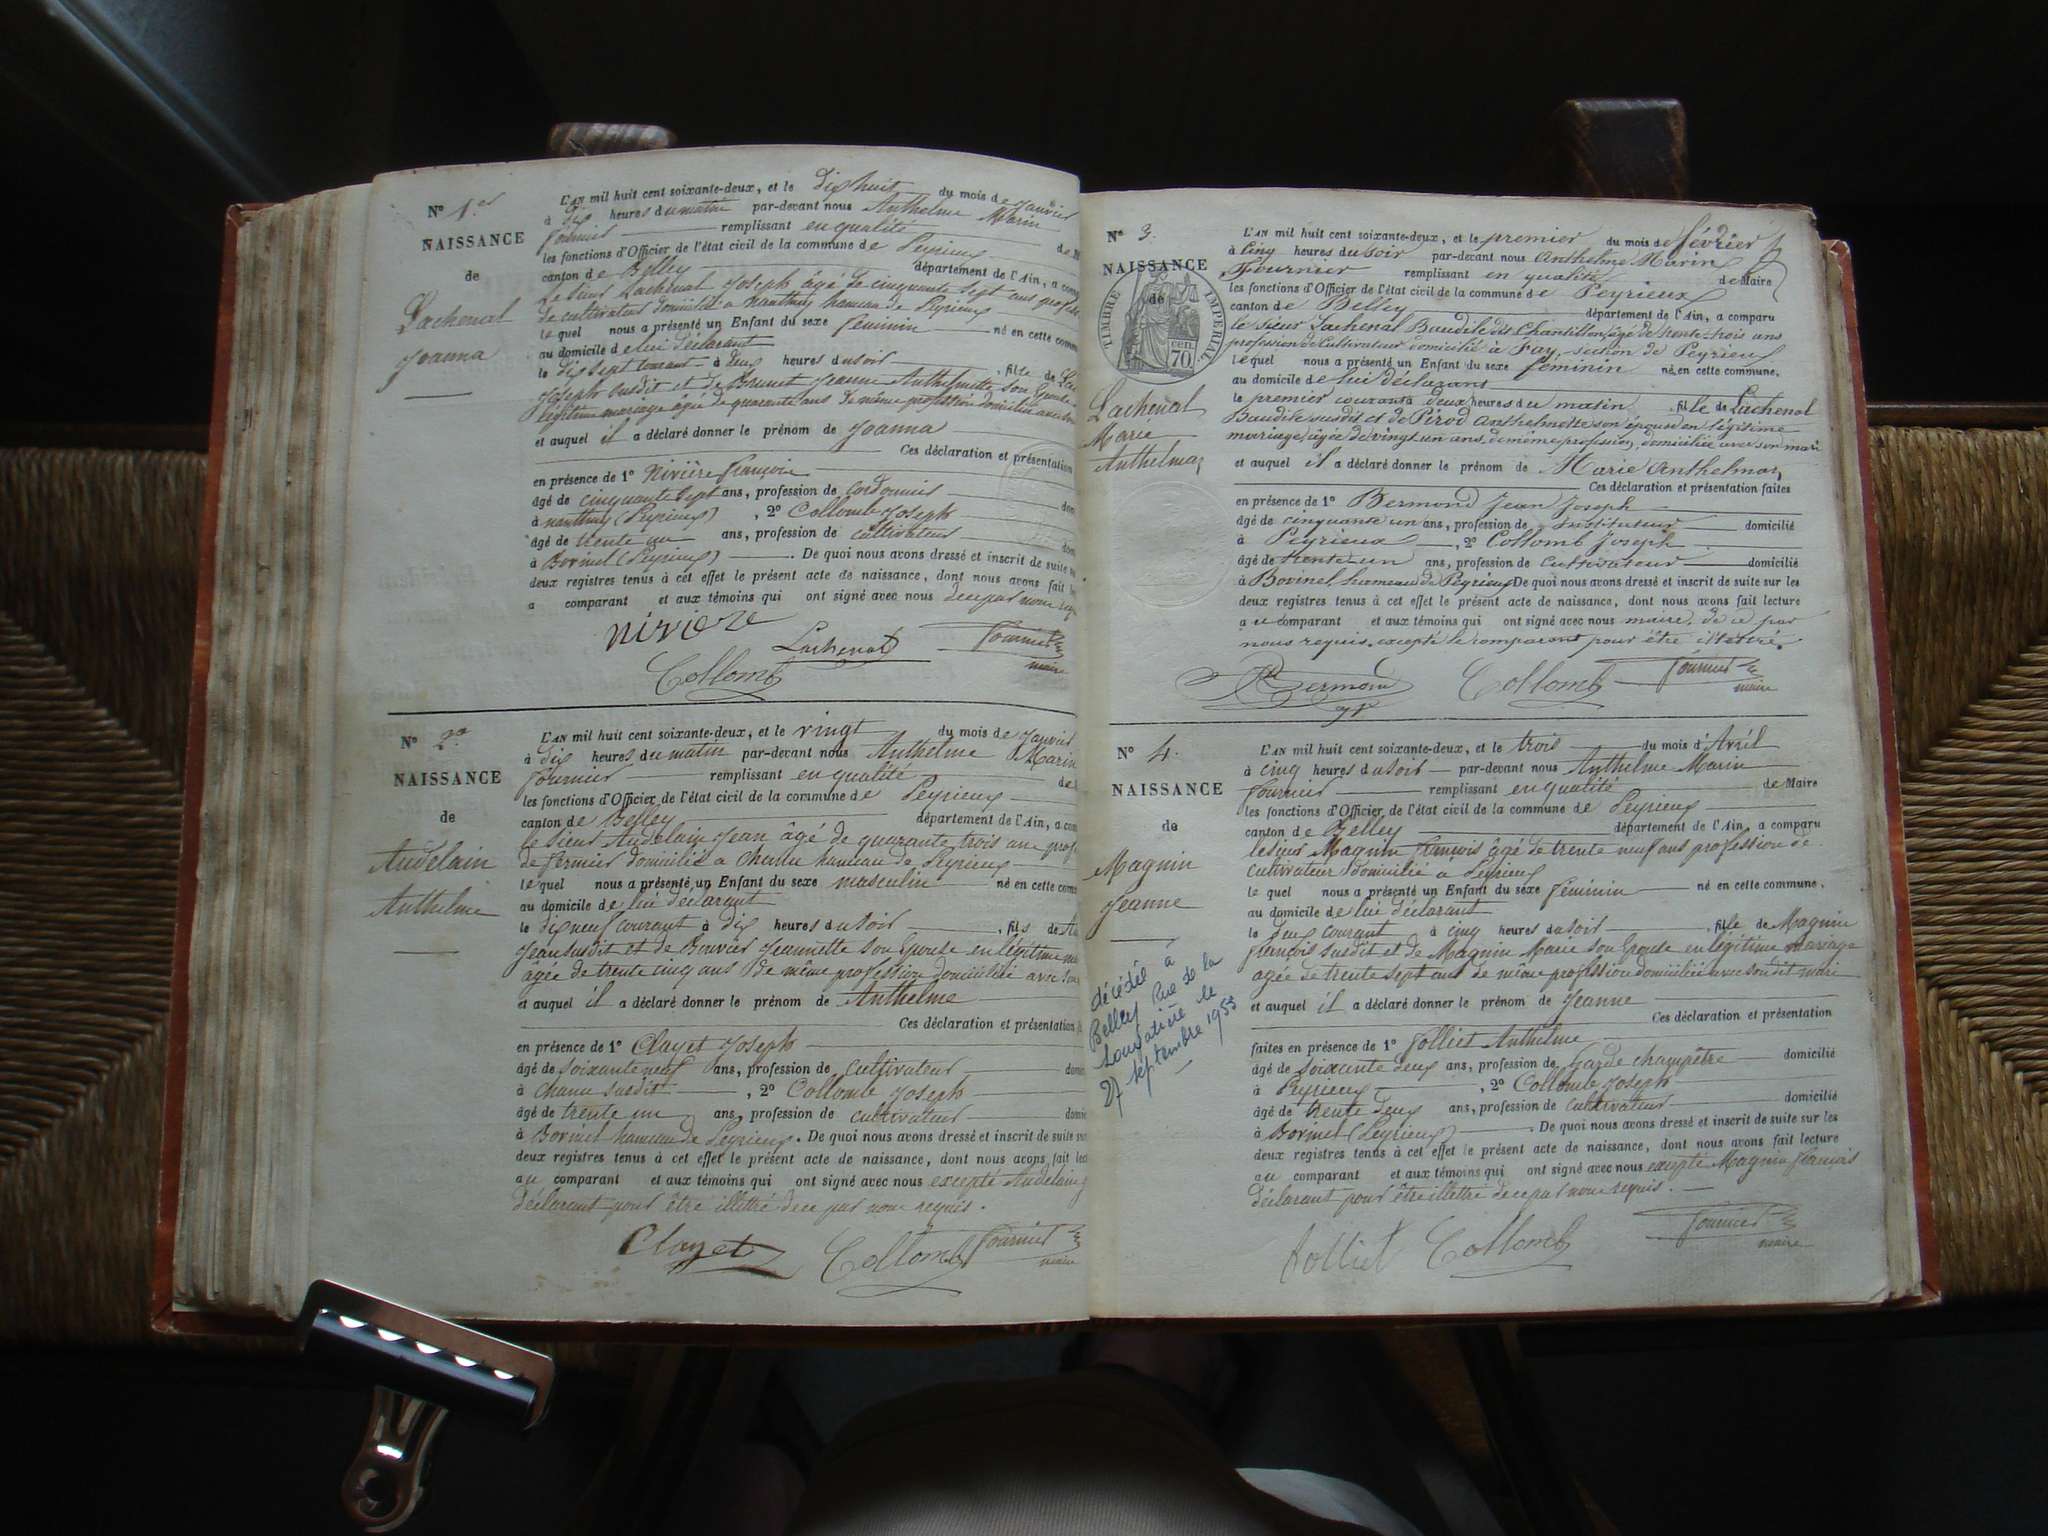 N° 1er
NAISSANCE
de
Lachenal
Joanna
L'AN mil huit cent soixante-deux, et le dix huit du mois de Janvier
à dix heures du matin par-devant nous Anthelme Marin
Fournier remplissant en qualité de M
les fonctions d'Officier de l'état civil de la commune de Peyrieux
canton de Belley département de l'Ain, a comp
le sieur Lachenal Joseph âgé de cinquante sept ans profes
de cultivateur domicilié à Nanthuy hameau de Peyrieux
lequel nous a présenté un Enfant du sexe féminin né en cette comm
au domicile de lui déclarant
le dix sept courant à deux heures du soir, fille de Lac
Joseph susdit et de Brunet Jeanne Anthelmette son Epouse
légitime mariage âgée de quarante ans de même profession domiciliée avec son
et auquel il a déclaré donner le prénom de Joanna
Ces déclaration et présentation
en présence de 1° Nivière François
âgé de cinquante sept ans, profession de cordonnier
à Nanthuy (Peyrieux), 2° Collomb Joseph dom
âgé de trente un ans, profession de cultivateur
à Borinel (Peyrieux). De quoi nous avons dressé et inscrit de suite
deux registres tenus à cet effet le présent acte de naissance, dont nous avons fait
a comparant et aux témoins qui ont signé avec nous de ce par nous
Nivière
Lachenal
Fournier
maire
Collomb
N° 2e
NAISSANCE
de
Audelain
Anthelme
L'AN mil huit cent soixante-deux, et le vingt du mois de Janvier
à dix heures du matin par-devant nous Anthelme Marin
Fournier remplissant en qualité de
les fonctions d'Officier de l'état civil de la commune de Peyrieux
canton de Belley département de l'Ain, a com
le sieur Audelain Jean âgé de quarante trois ans prof
de fermier domicilié à Chanu hameau de Peyrieux
lequel nous a présenté un Enfant du sexe masculin né en cette com
au domicile de lui déclarant
le dix neuf courant à dix heures du soir, fils de Au
Jean susdit et de Bouvier Jeannette son Epouse en légitime ma
âgée de trente cinq ans de même profession domiciliée avec son
et auquel il a déclaré donner le prénom de Anthelme
Ces déclaration et présentation
en présence de 1° Clayet Joseph
âgé de soixante neuf ans, profession de cultivateur domi
à Chanu susdit, 2° Collomb Joseph
âgé de trente un ans, profession de cultivateur domic
à Borinel hameau de Peyrieux. De quoi nous avons dressé et inscrit de suite sur
deux registres tenus à cet effet le présent acte de naissance, dont nous avons fait lec
au comparant et aux témoins qui ont signé avec nous excepté Audelain
déclarant pour être illettré de ce par nous requis.
Clayet
Collomb
Fournier
maire
N° 3.
NAISSANCE
de
TIMBRE IMPERIAL
70 cen.
Lachenal
Marie
Anthelma
L'AN mil huit cent soixante-deux, et le premier du mois de février
à cinq heures du soir par-devant nous Anthelme Marin
Fournier remplissant en qualité de Maire
les fonctions d'Officier de l'état civil de la commune de Peyrieux
canton de Belley département de l'Ain, a comparu
le sieur Lachenal Baudile dit Chantillon, âgé de trente-trois ans
profession de Cultivateur domicilié à Fay, section de Peyrieux
lequel nous a présenté un Enfant du sexe féminin né en cette commune,
au domicile de lui déclarant
le premier courant à deux heures du matin, fille de Lachenal
Baudile susdit et de Pirod Anthelmette son épouse en légitime
mariage, âgée de vingt un ans, de même profession, domiciliée avec son mari
et auquel il a déclaré donner le prénom de Marie Anthelma
Ces déclaration et présentation faites
en présence de 1° Bermond Jean Joseph
âgé de cinquante un ans, profession de Instituteur domicilié
à Peyrieux, 2° Collomb Joseph
âgé de trente-un ans, profession de Cultivateur domicilié
à Borinel, hameau de Peyrieux De quoi nous avons dressé et inscrit de suite sur les
deux registres tenus à cet effet le présent acte de naissance, dont nous avons fait lecture
au comparant et aux témoins qui ont signé avec nous maire, de ce par
nous requis, excepté le comparant pour être illettré.
Bermond
Collomb
Fournier
maire
N° 4.
NAISSANCE
de
Magnin
Jeanne
décédée à
Belley Rue de la
le
27 septembre 1953
L'AN mil huit cent soixante-deux, et le trois du mois d'Avril
à cinq heures du soir par-devant nous Anthelme Marin
Fournier remplissant en qualité de Maire
les fonctions d'Officier de l'état civil de la commune de Peyrieux
canton de Belley département de l'Ain, a comparu
le sieur Magnin François âgé de trente neuf ans profession de
cultivateur domicilié à Peyrieux
lequel nous a présenté un Enfant du sexe féminin né en cette commune,
au domicile de lui déclarant
le deux courant à cinq heures du soir, fille de Magnin
François susdit et de Magnin Marie son Epouse en légitime mariage
âgée de trente sept ans de même profession domiciliée avec son dit mari
et auquel il a déclaré donner le prénom de Jeanne
Ces déclaration et présentation
faites en présence de 1° Jolliet Anthelme
âgé de soixante deux ans, profession de Garde champêtre domicilié
à Peyrieux, 2° Collomb Joseph
âgé de trente deux ans, profession de cultivateur domicilié
à Borinel (Peyrieux). De quoi nous avons dressé et inscrit de suite sur les
deux registres tenus à cet effet le présent acte de naissance, dont nous avons fait lecture
au comparant et aux témoins qui ont signé avec nous excepté Magnin François
déclarant pour être illettré de ce par nous requis.
Jolliet
Collomb
Fournier
maire